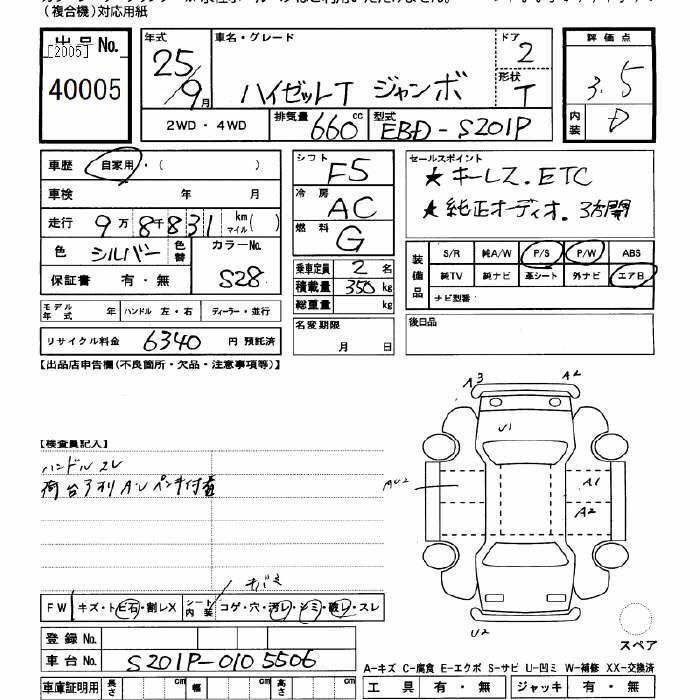 (複合機)対応用紙
出品No.
[2005]
40005
年式
25/9月
車名・グレード
ハイゼットT ジャンボ
ドア
2
形状
T
評価点
3.5
内装
D
2WD・4WD
排気量
660cc
型式
EBD-S201P
車歴
自家用・( )
車検 年 月
走行 9万8千831 km マイル( )
色 シルバー 色替
カラーNo.
S28
保証書 有・無
シフト
F5
冷房
AC
燃料
G
乗車定員 2名
積載量 350 kg
総重量 kg
セールスポイント
★キーレス.ETC
★純正オーディオ.3方開
装備品
S/R 純A/W P/S P/W ABS
純TV 純ナビ 革シート 外ナビ エアB
ナビ型番:
モデル年式 年 ハンドル 左・右 ディーラー・並行
リサイクル料金 6340 円 預託済
名変期限
月 日
後日品
【出品店申告欄(不良箇所・欠品・注意事項等)】
【検査員記入】
ハンドルスレ
A3
A2
U1
AU2
A1
A2
U2
FW キズ・トビ石・割レX
シート内装 コゲ・穴・汚レ・シミ・破レ・スレ
登録No.
車台No. S201P-0105506
スペア
A-キズ C-腐食 E-エクボ S-サビ U-凹ミ W-補修 XX-交換済
車庫証明用 長さ cm 幅 cm 高さ cm
工具 有・無 ジャッキ 有・無